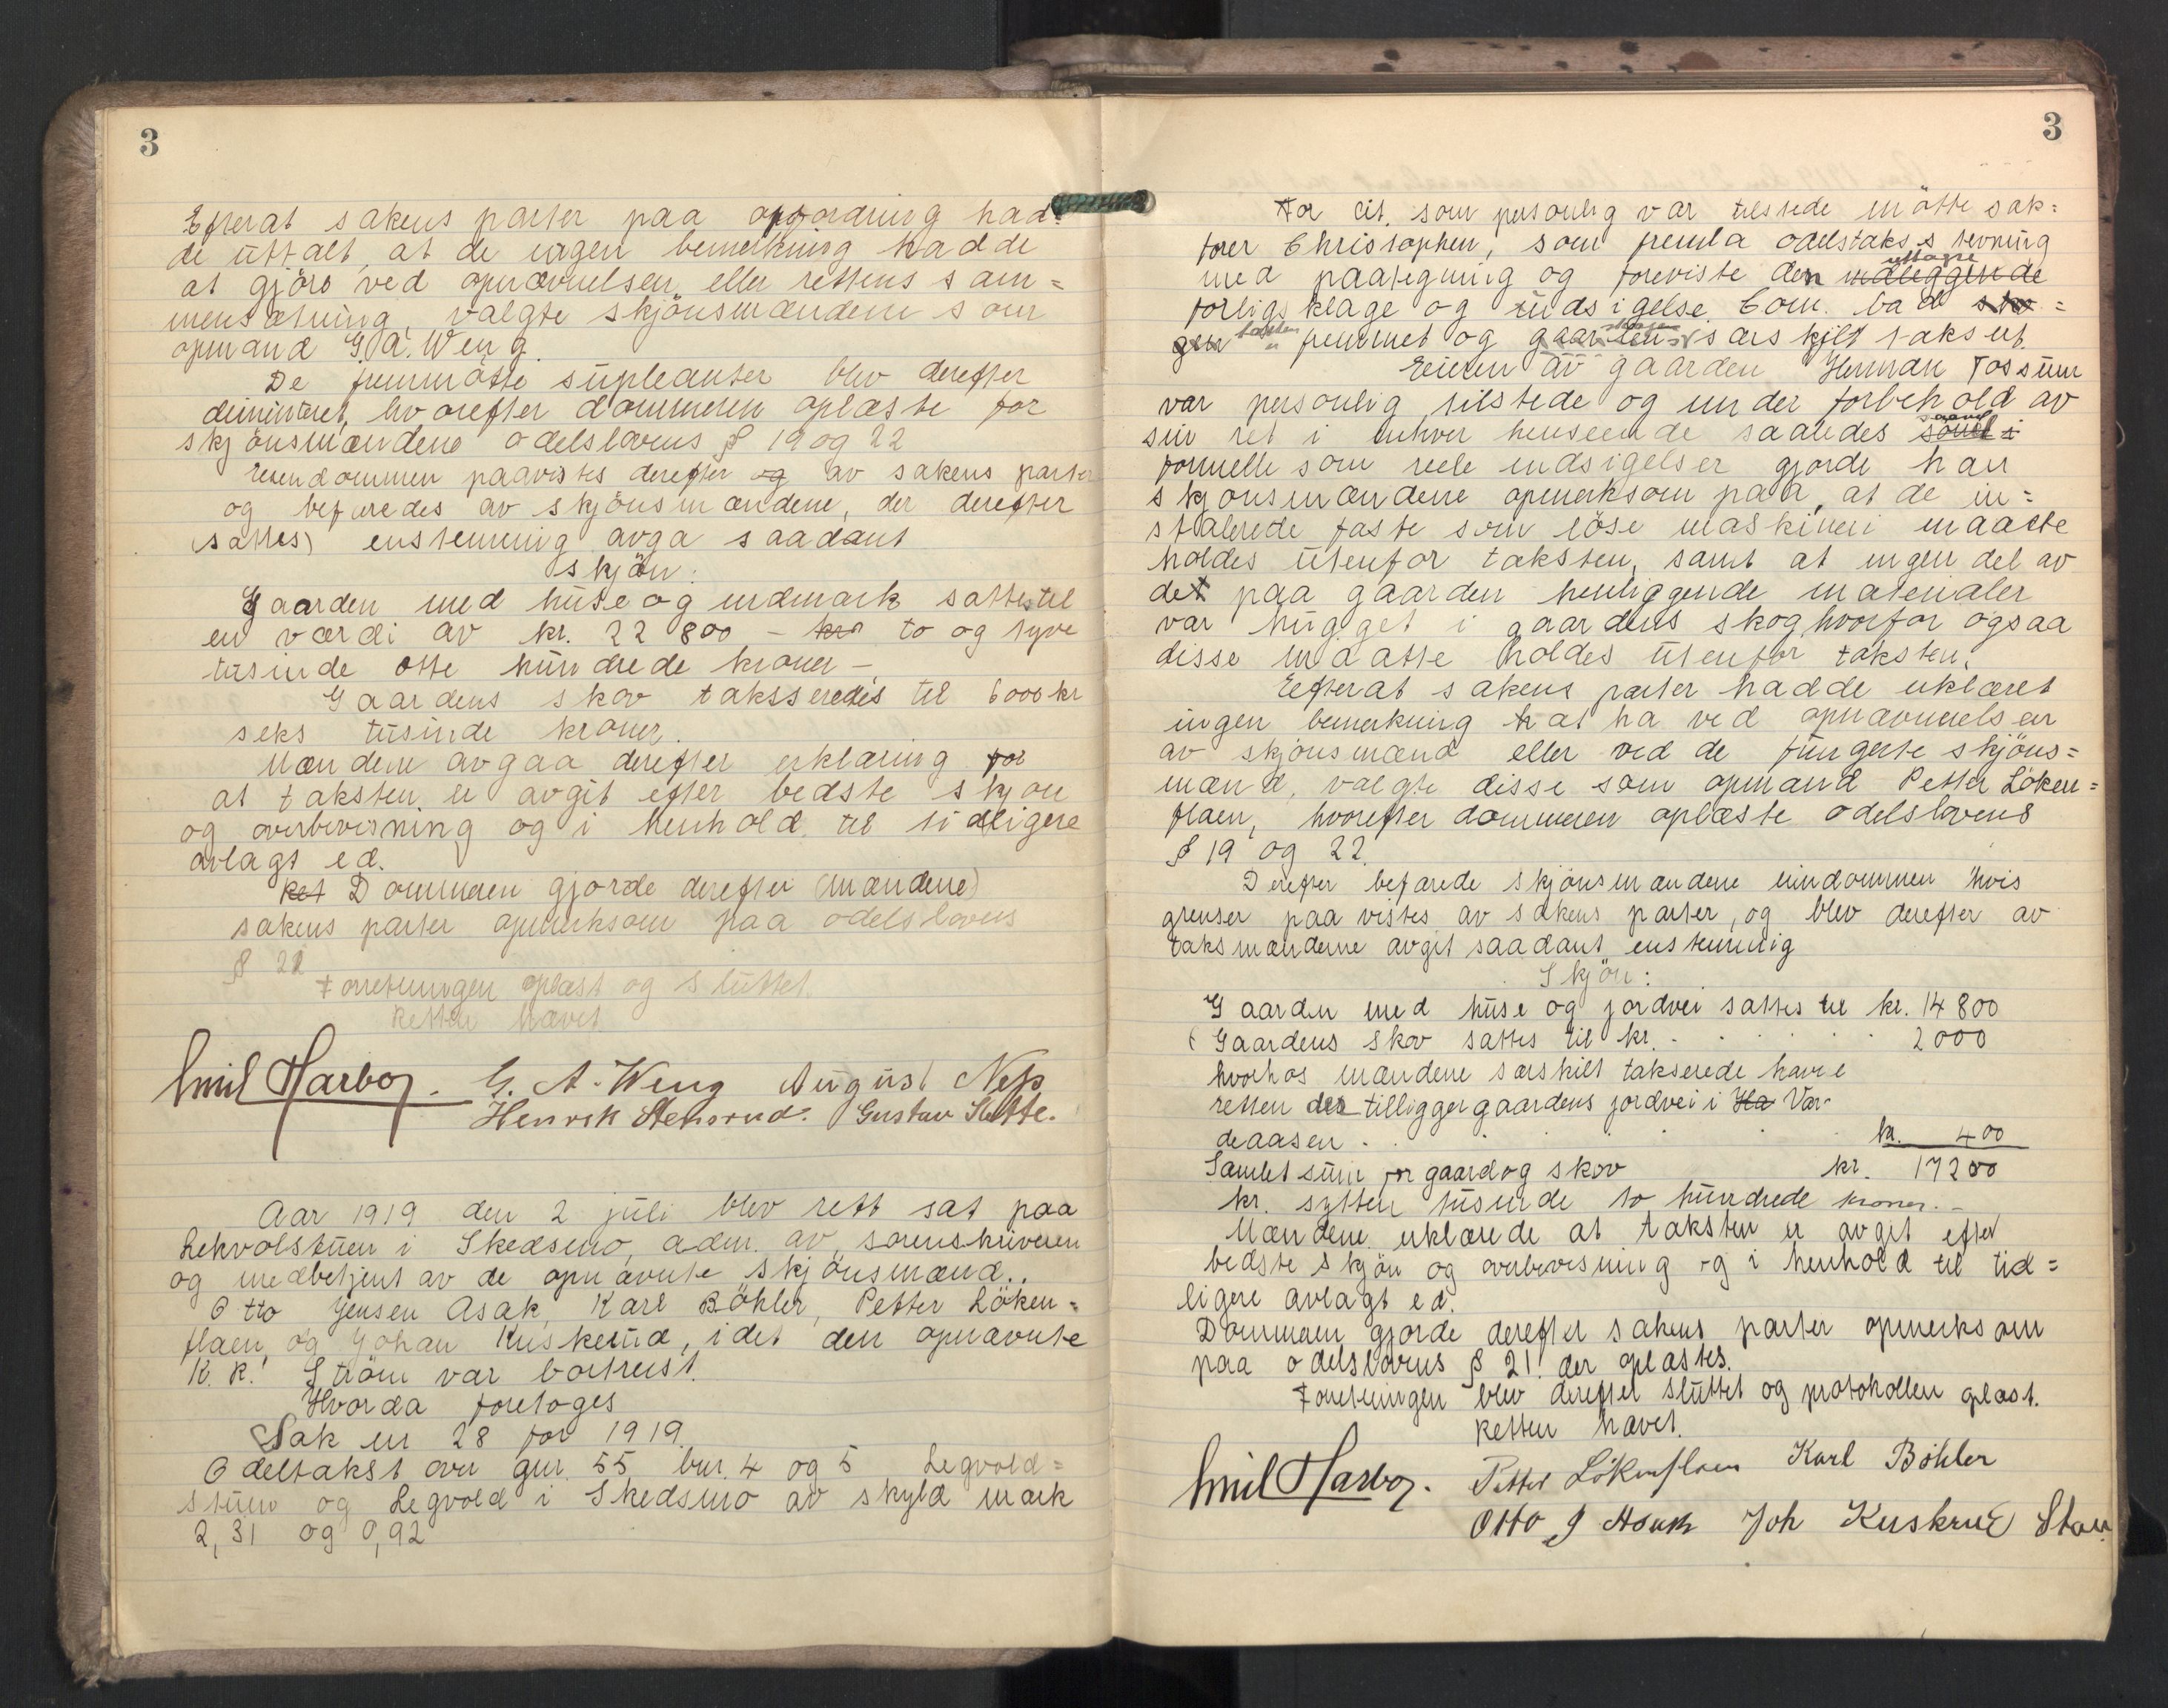 3
Efterat sakens parter paa opfordring had=
de uttalt, at de ingen bemerkning hadde
at gjöre ved opnævnelsen eller rettens sam=
mensætning, valgte skjönsmændene som
opmand G. A. Weng.
De fremmötte supleanter blev derefter
dimitteret, hvorefter dommeren oplæste for
skjönsmændene odelslovens § 19 og 22
Eiendommen paavistes derefter og av sakens parter
og befaredes av skjönsmændene, der derefter
(sattes) enstemmig avga saadant
skjön:
Gaarden med huse og indmark sattes til
en værdi av kr. 22 800 - kr to og tyve
tusinde otte hundrede kroner -
Gaardens skov taksseredes til 6000 kr
seks tusinde kroner.
Mændene avgaa derefter erklæring for
at taksten er avgit efter bedste skjön
og overbevisning og i henhold til tidligere
avlagt ed.
Ret Dommeren gjorde derefter (mændene)
sakens parter opmerksom paa odelslovens
§ 21
Forretningen oplæst og sluttet.
Retten hævet
Emil Harboy. G. A. Weng August Nes
Henrik Stensrud. Gustav Slette.
Aar 1919 den 2 juli blev rett sat paa
Lekvolstuen i Skedsmo, adm. av sorenskriveren
og medbetjent av de opnævnte skjönsmænd..
Otto Jensen Asak, Karl Böhler, Petter Löken=
flaen, og Johan Kuskerud, idet den opnævnte
K. K. Ström var bortreist.
Hvorda foretoges
Sak nr 28 for 1919.
Odeltakst over gnr. 55 bnr. 4 og 5 Legvold=
stuen og Legvold i Skedsmo av skyld mark
2,31 og 0,92
3
For cit. som personlig var tilstede mötte sak=
förer Christophersen, som fremla odelstakst s tevning
med paategning og foreviste den utlagte indleggende
forligsklage og indsigelse. Com. bad sko=
gen taksten fremmet og gaardens skoge særskjilt taksert.
Eieren av gaarden Herman Tossum
var personlig tilstede og under forbehold av
sin ret i enhver henseende saaledes saavel i
formelle som reele indsigelser gjorde han
skjönsmændene opmerksom paa, at de in=
stalerede faste som löse maskineri maatte
holdes utenfor taksten, samt at ingen del av
det paa gaarden henliggende materialer
var hugget i gaardens skog hvorfor ogsaa
disse maatte holdes utenfor taksten.
Eefterat sakens parter hadde erklæret
ingen bemerkning at ha ved opnævnelsen
av skjönsmænd eller ved de fungerte skjöns=
mænd, valgte disse som opmand Petter Löken=
flaen, hvorefter dommeren oplæste odelslovens
§ 19 og 22.
Derefter befarede skjönsmændene eiendommen hvis
grenser paavistes av sakens parter, og blev derefter av
taksmænderne avgit saadant enstemmig
Skjön:
Gaarden med huse og jordvei sattes til kr. 14 800
(Gaardens skov sattes til kr. . . . . . 2000
hvorhos mændene særskilt takserede havne
retten der tilligger gaardens jordvei i Ha Var-
deaasen . . . . . kr. 400
Samlet sum for gaard og skov kr. 17200
kr. sytten tusinde to hundrede kroner. -
Mændene erklærede at taksten er avgit efter
bedste skjön og overbevisning og i henhold til tid=
ligere avlagt ed.
Dommeren gjorde derefter sakens parter opmerksom
paa odelslovens § 21. der oplæstes.
Forretningen blev derefter sluttet og protokollen oplæst.
Retten hævet.
Emil Harboy. Petter Lökenflaen Karl Böhler
Otto J Asak Joh Kuskrud